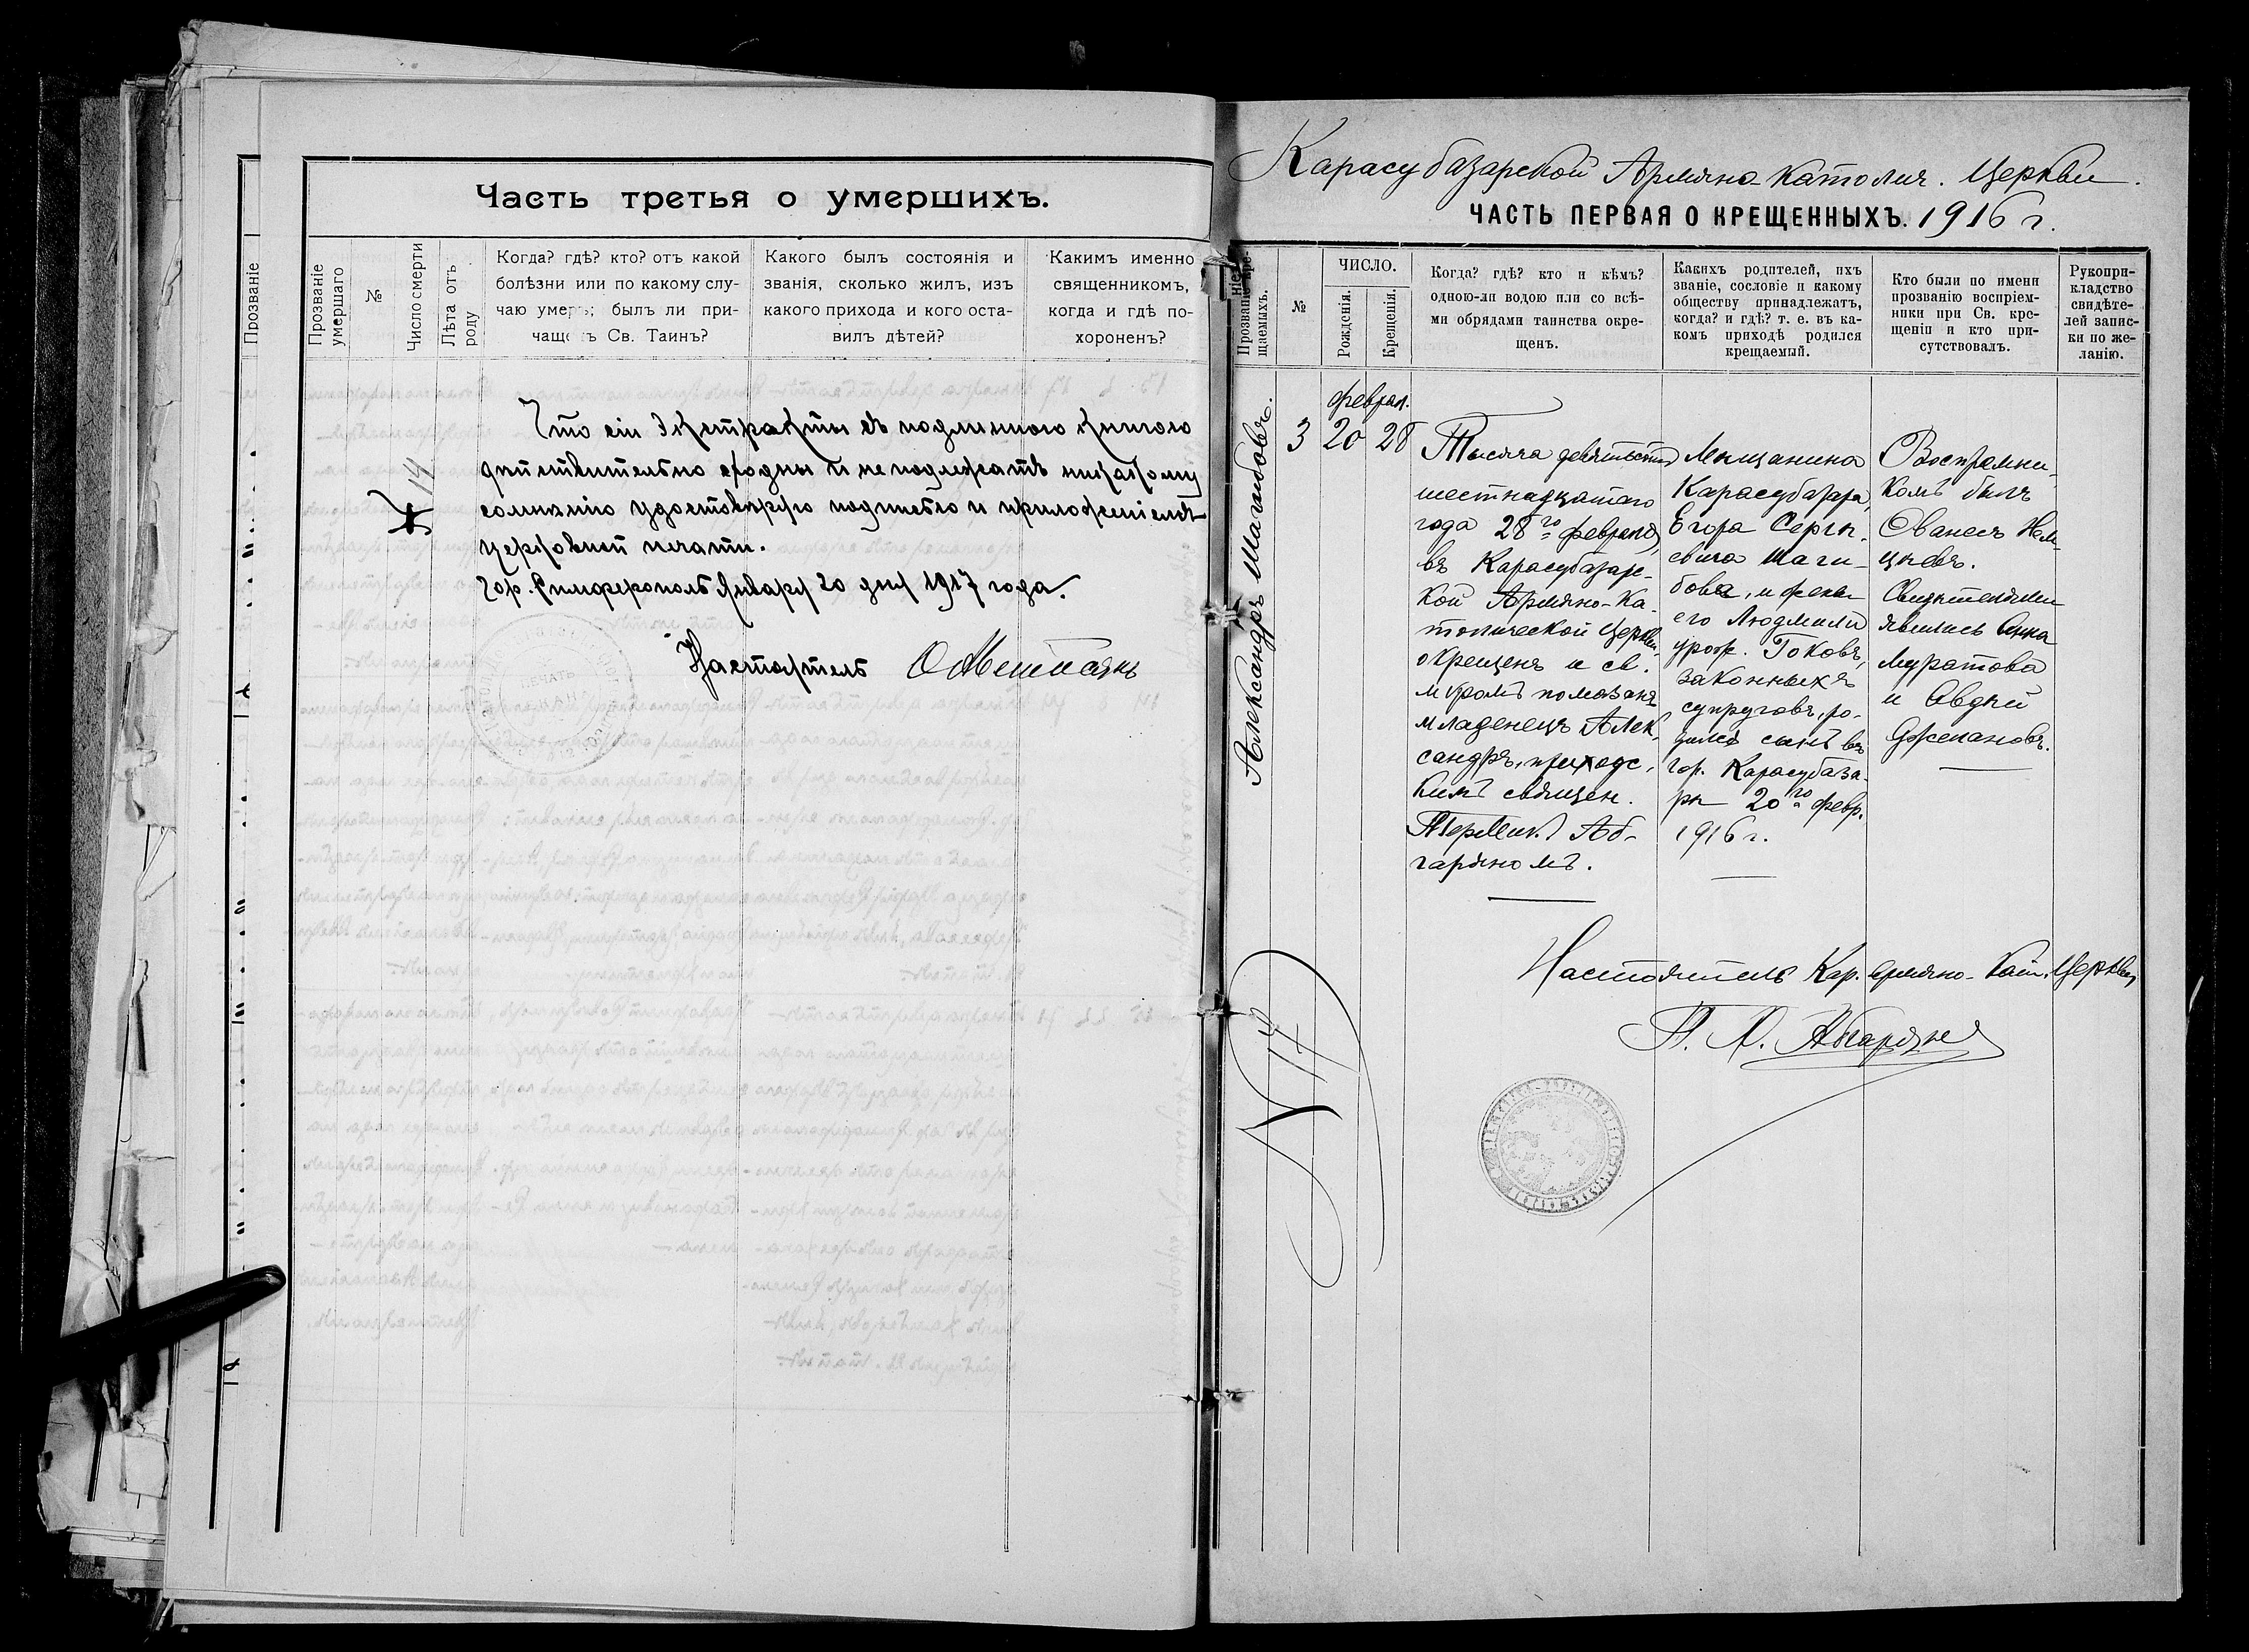 Прозваніе
Часть третья о умершихъ.
Прозваніе умершаго
№
Число смерти
Лѣта отъ роду
Когда? гдѣ? кто? отъ какой
болѣзни или по какому слу-
чаю умеръ; былъ ли при-
чащенъ Св. Таинъ?
Какого былъ состоянія и
званія, сколько жилъ, изъ
какого прихода и кого оста-
вилъ дѣтей?
Какимъ именно
священникомъ,
когда и гдѣ по-
хороненъ?
Что сіи Экстракты съ подлинною книгою
дѣйствительно сходны и не подлежатъ никакому
сомнѣнію удостовѣряю подписью и приложеніемъ
церковной печати.
Гор. Симферополь Января 20 дня 1917 года.
Настоятель
№ 14
Карасубазарской Армяно-Католич. Церкви.
ЧАСТЬ ПЕРВАЯ О КРЕЩЕННЫХЪ. 1916 г.
Прозваніе кре-
щаемыхъ.
№
ЧИСЛО.
Рожденія.
Крещенія.
Когда? гдѣ? кто и кѣмъ?
одною-ли водою или со всѣ-
ми обрядами таинства окре-
щенъ.
Какихъ родителей, ихъ
званіе, сословіе и какому
обществу принадлежатъ,
когда? и гдѣ? т. е. въ ка-
комъ приходѣ родился
крещаемый.
Кто были по имени
прозванію воспріем-
ники при Св. кре-
щеніи и кто при-
сутствовалъ.
Рукопри-
кладство
свидѣте-
лей запис-
ки по же-
ланію.
Александръ Шагибовъ.
3
феврал.
20 28
Тысяча девятьсотъ
шестнадцатаго
года 28го февраля,
въ Карасубазарс-
кой Армяно-Ка-
толической Церкви
окрещенъ и св.
мѵромъ помазанъ
младенецъ Алек-
сандръ, приходс-
кимъ священ.
Аб-
гаряномъ.
Мѣщанина
Карасубазара,
Егора Сергѣ-
евича Шаги-
бова, и жены
его Людмилы
урож. Гоковъ,
законныхъ
супруговъ, ро-
дился сынъ въ
гор. Карасубаза-
рѣ 20го февр.
1916 г.
Воспріемни-
комъ былъ
Ованесъ Нем-
цевъ.
Свидѣтелями
явились Анна
Муратова
и Авдѣй
Степановъ.
Настоятель Кар. Армяно-Кат. Церкви,
Абгарянъ
№ 14